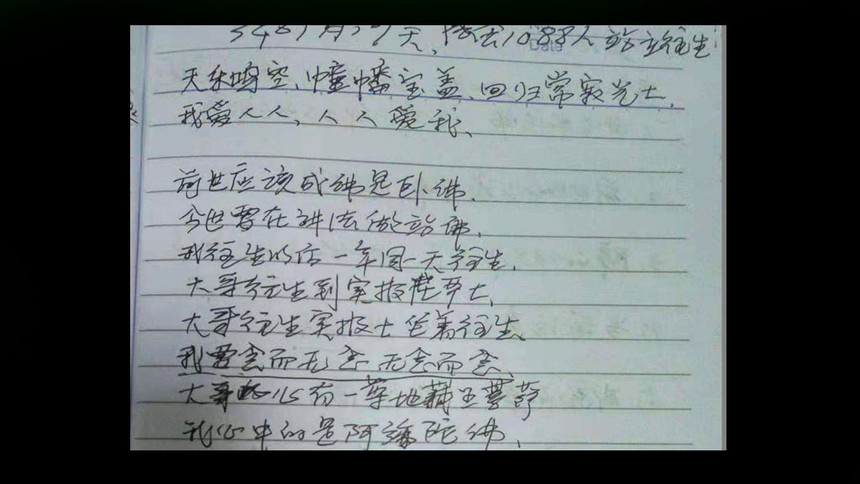 天, 1088人站立往生
Date
天乐鸣空、幢幡宝盖、回归常寂光土,
我爱人人, 人人爱我、
前世应该成佛是卧佛.
今世要在讲法做站佛,
我往生以后一年同一天往生,
大哥往生到实报土,
大哥往生实报土坐着往生、
我要念而无念 无念而念、
大哥心有一尊地藏王菩萨
我心中的是阿弥陀佛,